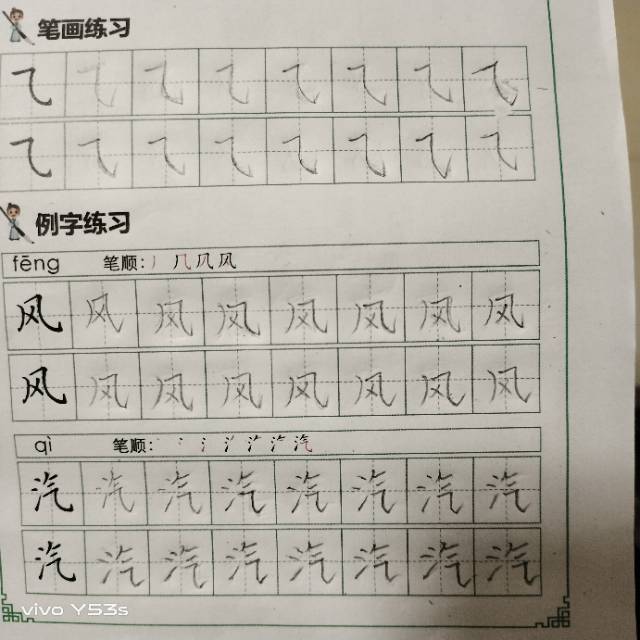 笔画练习
⺄ ⺄ ⺄ ⺄ ⺄ ⺄ ⺄ ⺄
⺄ ⺄ ⺄ ⺄ ⺄ ⺄ ⺄ ⺄
例字练习
fēng 笔顺: 丿 几 凤 风
风 风 风 风 风 风 风 风
风 风 风 风 风 风 风 风
qì 笔顺:
汽 汽 汽 汽 汽 汽 汽 汽
汽 汽 汽 汽 汽 汽 汽 汽
vivo Y53s